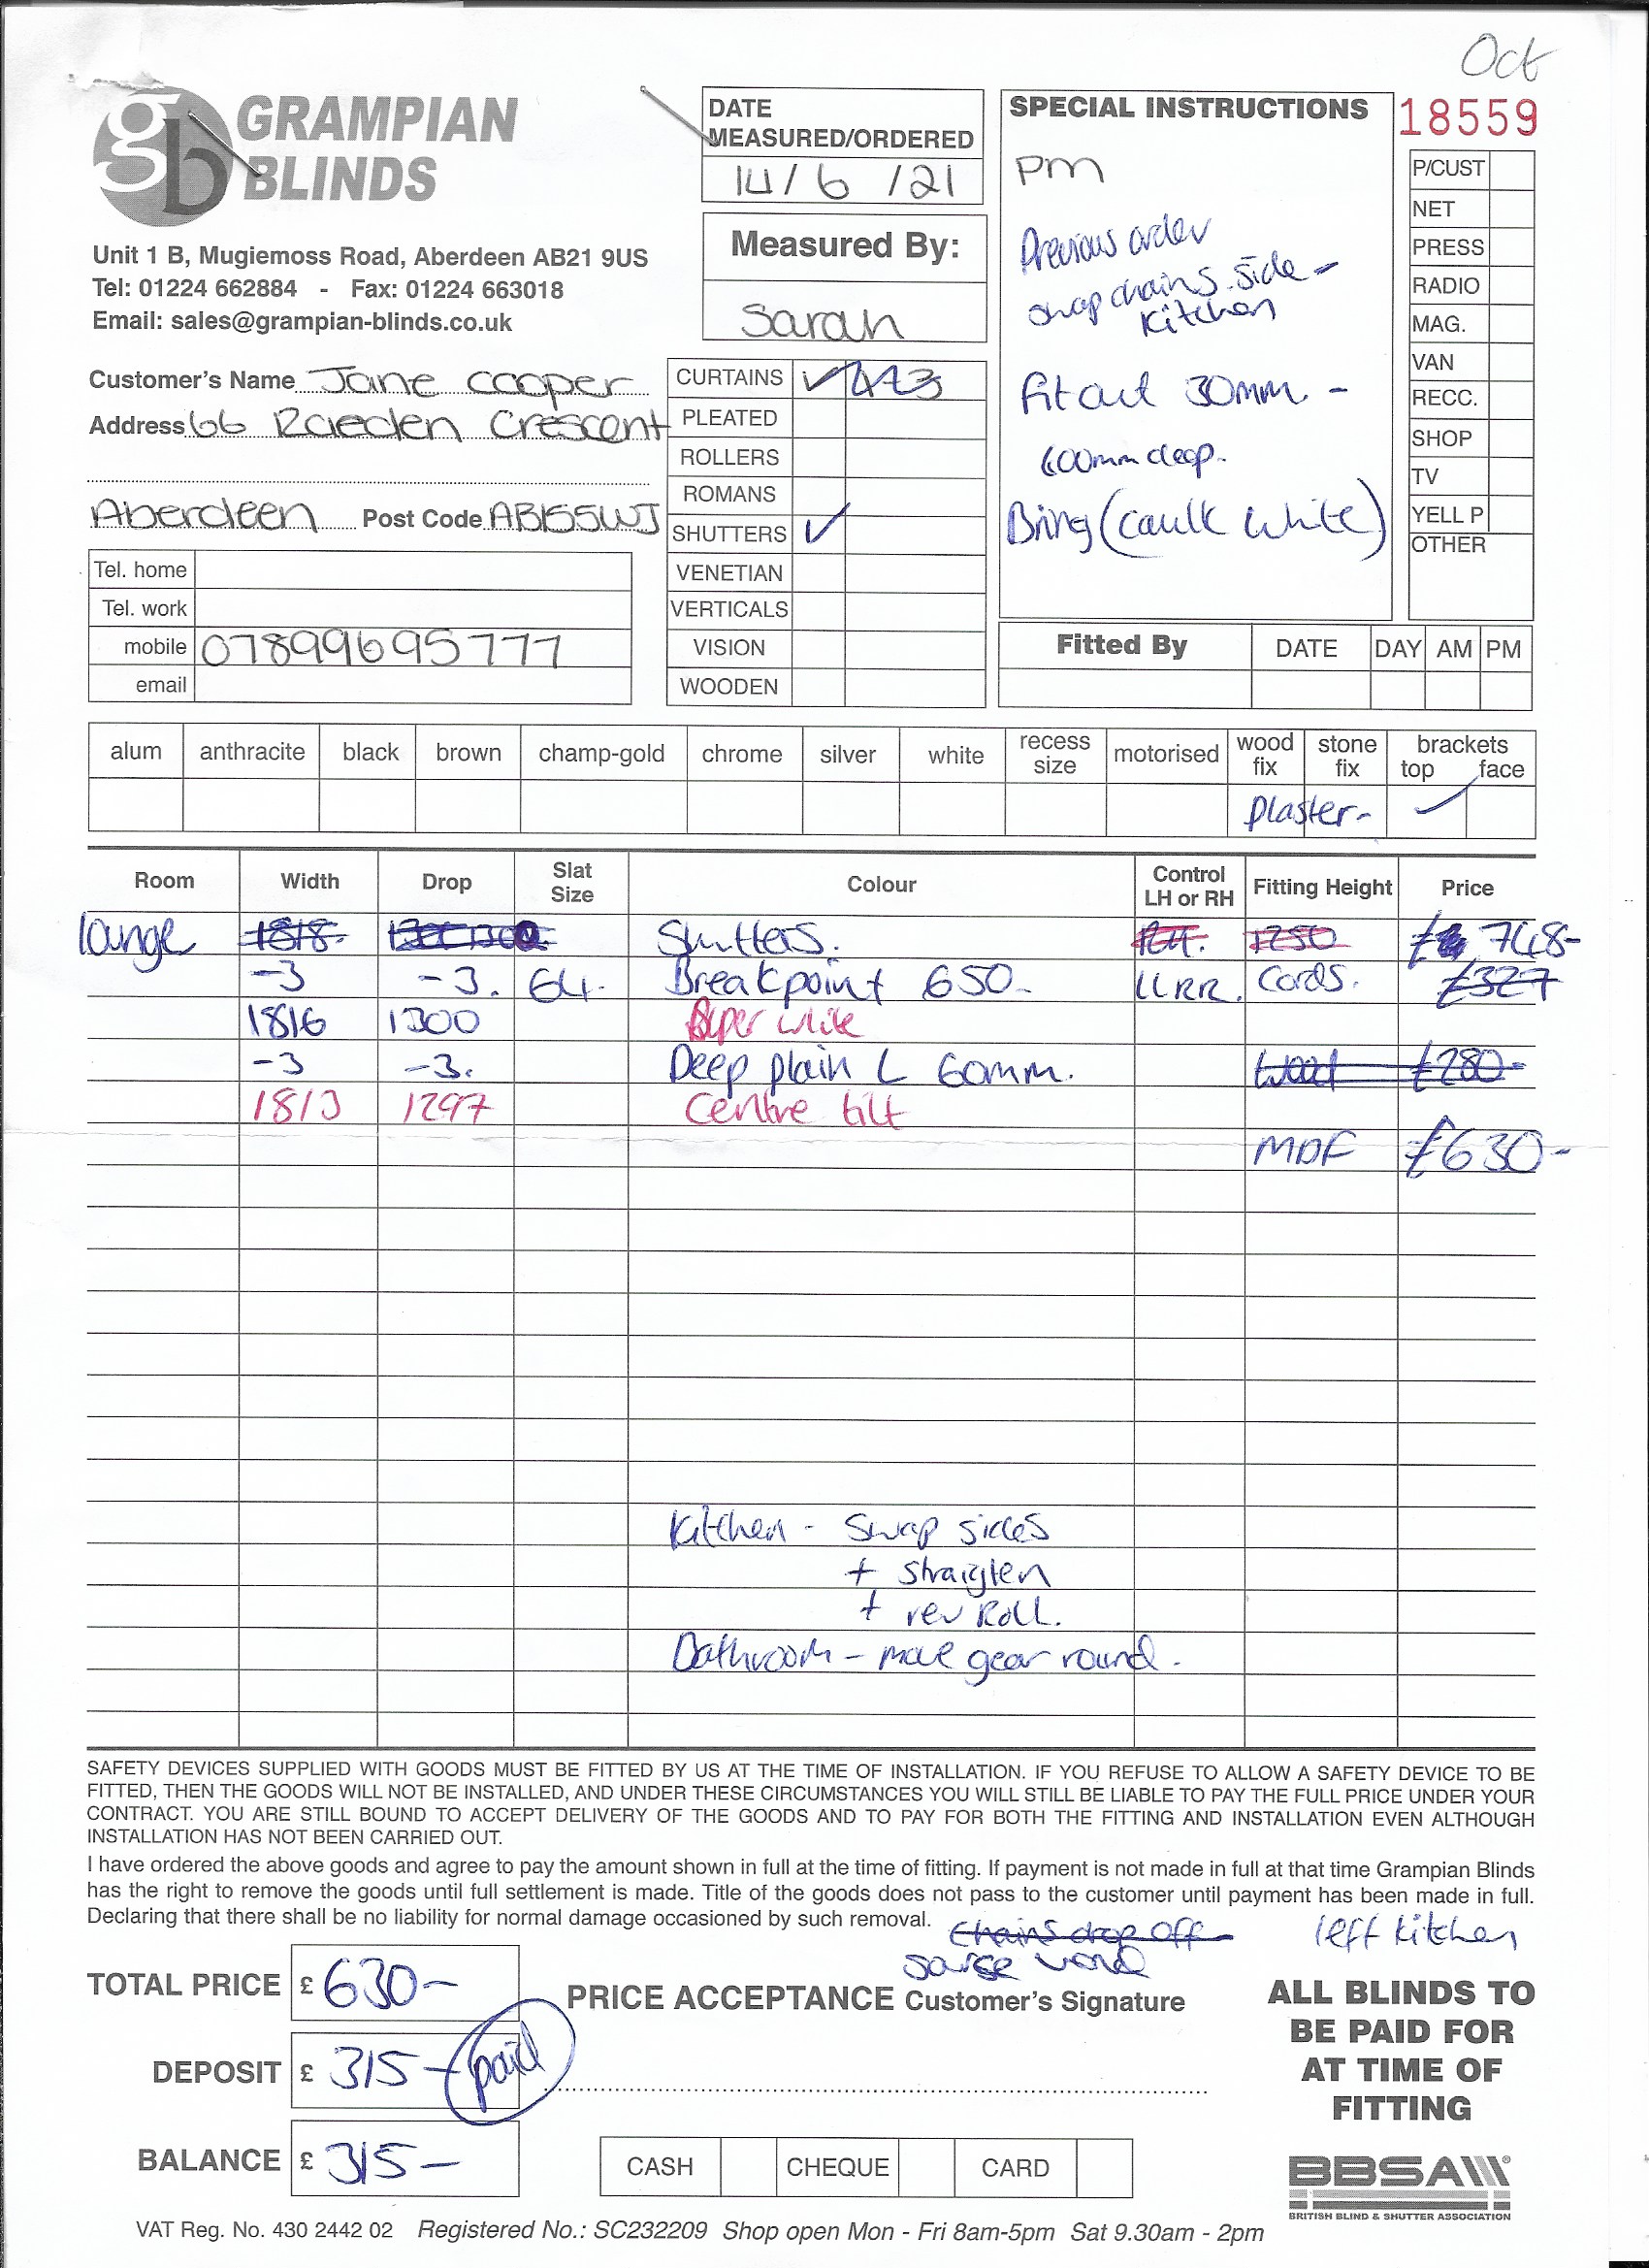 Oct
GRAMPIAN
BLINDS
Unit 1 B, Mugiemoss Road, Aberdeen AB21 9US
Tel: 01224 662884 - Fax: 01224 663018
Email: sales@grampian-blinds.co.uk
Customer's Name Jane Cooper
Address 66 Raeden Crescent
Aberdeen Post Code AB155WJ
Tel. home
Tel. work
mobile 07899695777
email
DATE
MEASURED/ORDERED
14/6/21
Measured By:
Sarah
CURTAINS ✓
PLEATED
ROLLERS
ROMANS
SHUTTERS ✓
VENETIAN
VERTICALS
VISION
WOODEN
SPECIAL INSTRUCTIONS
pm
Previous order
swap chains side -
kitchen
Fit out 30mm -
600mm deep.
Bring (caulk white)
18559
P/CUST
NET
PRESS
RADIO
MAG.
VAN
RECC.
SHOP
TV
YELL P
OTHER
Fitted By DATE DAY AM PM
alum anthracite black brown champ-gold chrome silver white recess size motorised wood fix stone fix brackets top face
plaster- ✓
Room Width Drop Slat Size Colour Control LH or RH Fitting Height Price
lounge 1818 Shutters. RH. 1250 £ 748-
-3 -3. 64. Breakpoint 650- LLRR. Cords. £327
1816 1300 white
-3 -3. Deep plain L 60mm. wood £280-
1813 1297 Centre tilt
MDF £630-
Kitchen - Swap sides
+ straigten
+ rev Roll.
Bathroom - move gear round.
SAFETY DEVICES SUPPLIED WITH GOODS MUST BE FITTED BY US AT THE TIME OF INSTALLATION. IF YOU REFUSE TO ALLOW A SAFETY DEVICE TO BE
FITTED, THEN THE GOODS WILL NOT BE INSTALLED, AND UNDER THESE CIRCUMSTANCES YOU WILL STILL BE LIABLE TO PAY THE FULL PRICE UNDER YOUR
CONTRACT. YOU ARE STILL BOUND TO ACCEPT DELIVERY OF THE GOODS AND TO PAY FOR BOTH THE FITTING AND INSTALLATION EVEN ALTHOUGH
INSTALLATION HAS NOT BEEN CARRIED OUT.
I have ordered the above goods and agree to pay the amount shown in full at the time of fitting. If payment is not made in full at that time Grampian Blinds
has the right to remove the goods until full settlement is made. Title of the goods does not pass to the customer until payment has been made in full.
Declaring that there shall be no liability for normal damage occasioned by such removal.
Chains drop off left kitchen
TOTAL PRICE £ 630-
PRICE ACCEPTANCE Customer's Signature
DEPOSIT £ 315- paid
BALANCE £ 315-
CASH CHEQUE CARD
ALL BLINDS TO
BE PAID FOR
AT TIME OF
FITTING
BBSA
BRITISH BLIND & SHUTTER ASSOCIATION
VAT Reg. No. 430 2442 02 Registered No.: SC232209 Shop open Mon - Fri 8am-5pm Sat 9.30am - 2pm